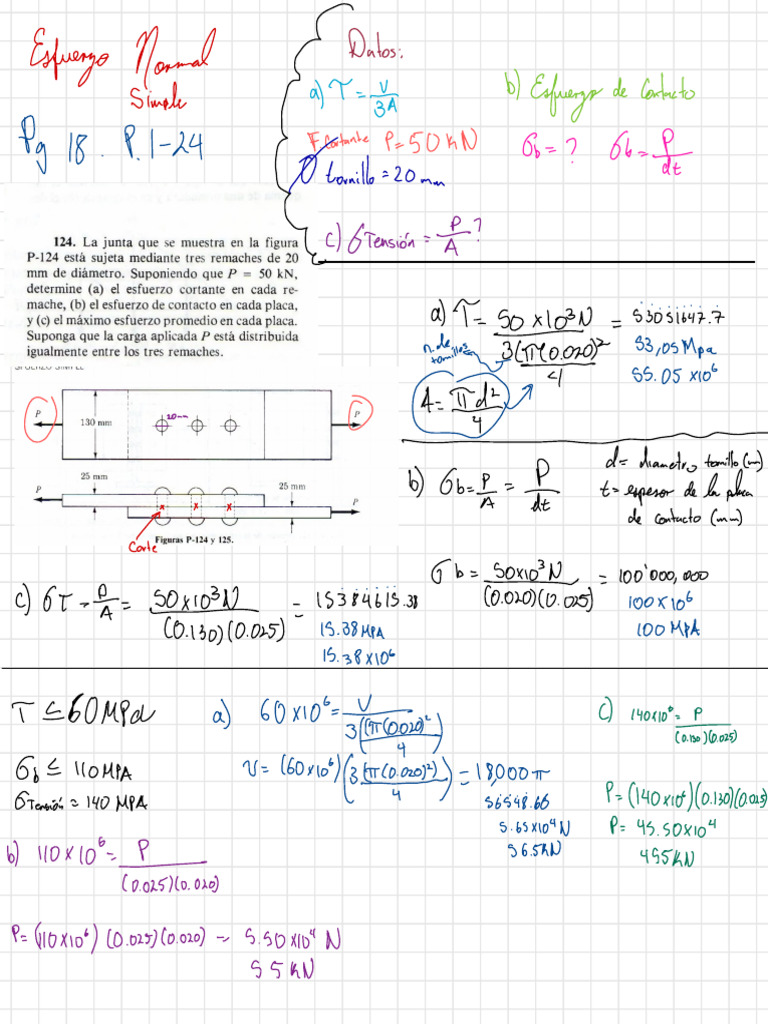 Esfuerzo Normal
Simple
Pg 18. P.1-24
Datos:
a) τ = V/3A
F. Cortante P=50 kN
D tornillo = 20 mm
c) σTensión = P/A ?
b) Esfuerzo de Contacto
σb = ? σb = P/dt
124. La junta que se muestra en la figura
P-124 está sujeta mediante tres remaches de 20
mm de diámetro. Suponiendo que P = 50 kN,
determine (a) el esfuerzo cortante en cada re-
mache, (b) el esfuerzo de contacto en cada placa,
y (c) el máximo esfuerzo promedio en cada placa.
Suponga que la carga aplicada P está distribuida
igualmente entre los tres remaches.
P
130 mm
20mm
P
25 mm
25 mm
P
P
Corte
Figuras P-124 y 125.
a) τ = 50 x10³N / 3(π(0.020)²/4) = 53051647.7
n. de
tornillos
53,05 Mpa
55.05 x10⁶
A = πd²/4
b) σb = P/A = P/dt
d= diametro tornillo (m)
t= espesor de la placa
de contacto (mm)
σb = 50x10³N / (0.020)(0.025) = 100'000,000
100x10⁶
100 MPA
c) στ = P/A = 50x10³N / (0.130)(0.025) = 15384615.38
15.38 MPA
15.38x10⁶
τ ≤ 60MPa
σb ≤ 110 MPA
σTensión = 140 MPA
a) 60x10⁶ = V / 3((π(0.020)²)/4)
V = (60x10⁶)(3(π(0.020)²)/4) = 18,000 π
56548.66
5.65x10⁴ N
56.5 kN
c) 140x10⁶ = P / (0.130)(0.025)
P= (140x10⁶)(0.130)(0.025)
P= 45.50x10⁴
455 kN
b) 110x10⁶ = P / (0.025)(0.020)
P= (110x10⁶)(0.025)(0.020) = 5.50x10⁴ N
55 kN